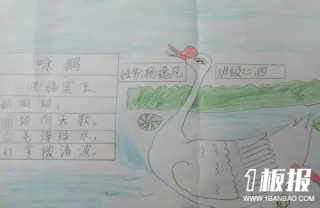 咏鹅
唐骆宾王
鹅鹅鹅,
曲项向天歌。
白毛浮绿水,
红掌拨清波。
姓名:杨逸凡 班级:二.四
1板报
WWW.1BANBAO.COM